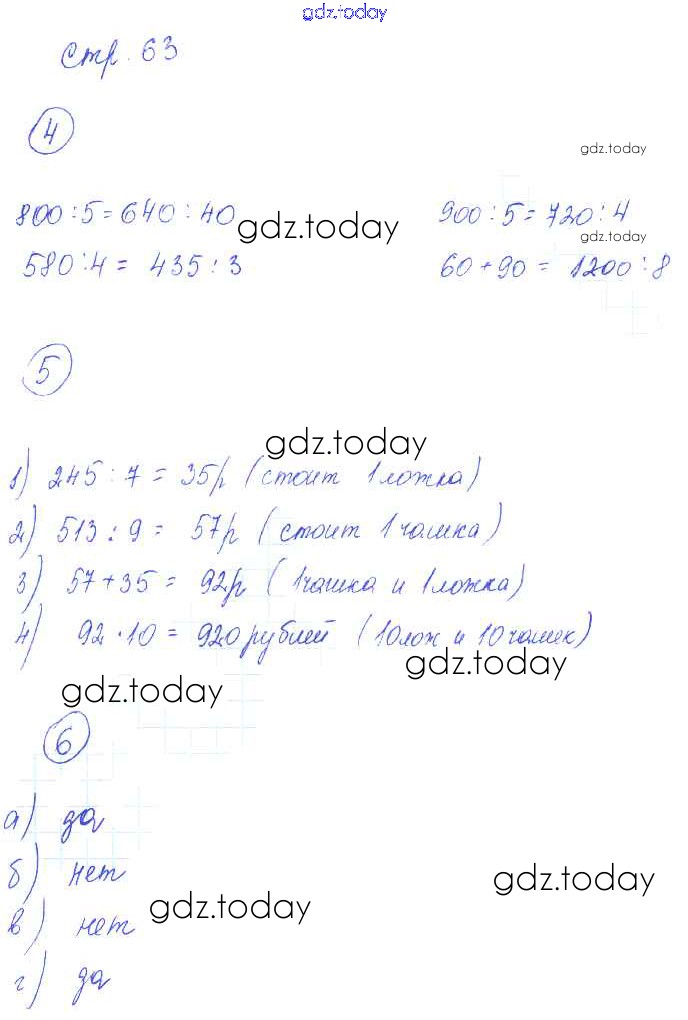 gdz.today
стр. 63
4
gdz.today
800 : 5 = 640 : 40 900 : 5 = 720 : 4
gdz.today gdz.today
580 : 4 = 435 : 3 60 + 90 = 1200 : 8
5
gdz.today
1) 245 : 7 = 35р (стоит 1 ложка)
2) 513 : 9 = 57р (стоит 1 чашка)
3) 57 + 35 = 92р (1 чашка и 1 ложка)
4) 92 · 10 = 920 рублей (10 лож и 10 чашек)
gdz.today
gdz.today
6
а) да
б) нет
gdz.today
gdz.today
в) нет
г) да